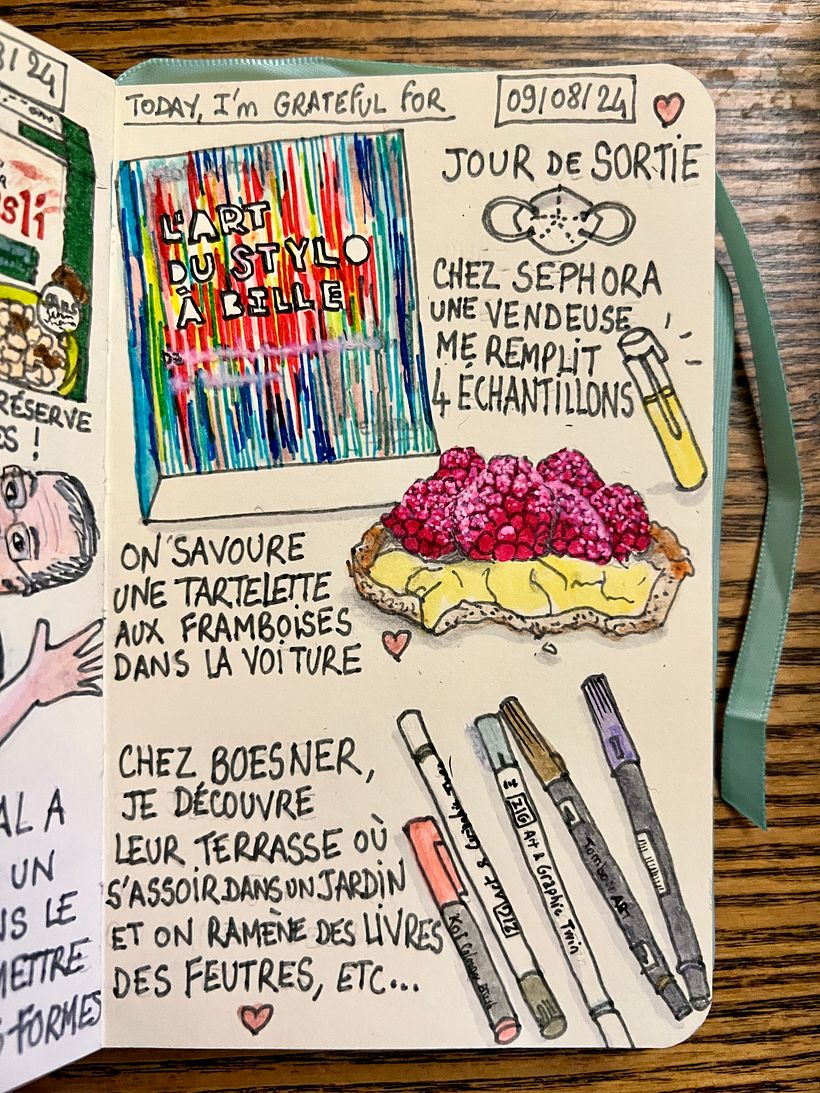 8/24
sli
RÉSERVE
ES !
AL A
UN
NS LE
METTRE
FORMES
TODAY, I'm GRATEFUL FOR
09/08/24
L'ART
DU STYLO
À BILLE
JOUR DE SORTIE
CHEZ SEPHORA
UNE VENDEUSE
ME REMPLIT
4 ÉCHANTILLONS
ON SAVOURE
UNE TARTELETTE
AUX FRAMBOISES
DANS LA VOITURE
CHEZ BOESNER,
JE DÉCOUVRE
LEUR TERRASSE OÙ
S'ASSOIR DANS UN JARDIN
ET ON RAMÈNE DES LIVRES
DES FEUTRES, ETC...
ZIG Art & Graphic Twin
ZIG Art & Graphic Twin
Tombow ART
Koi